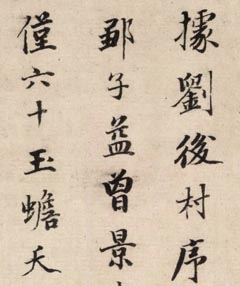 據劉後村序
鄞子益曾景
僅六十玉蟾夭